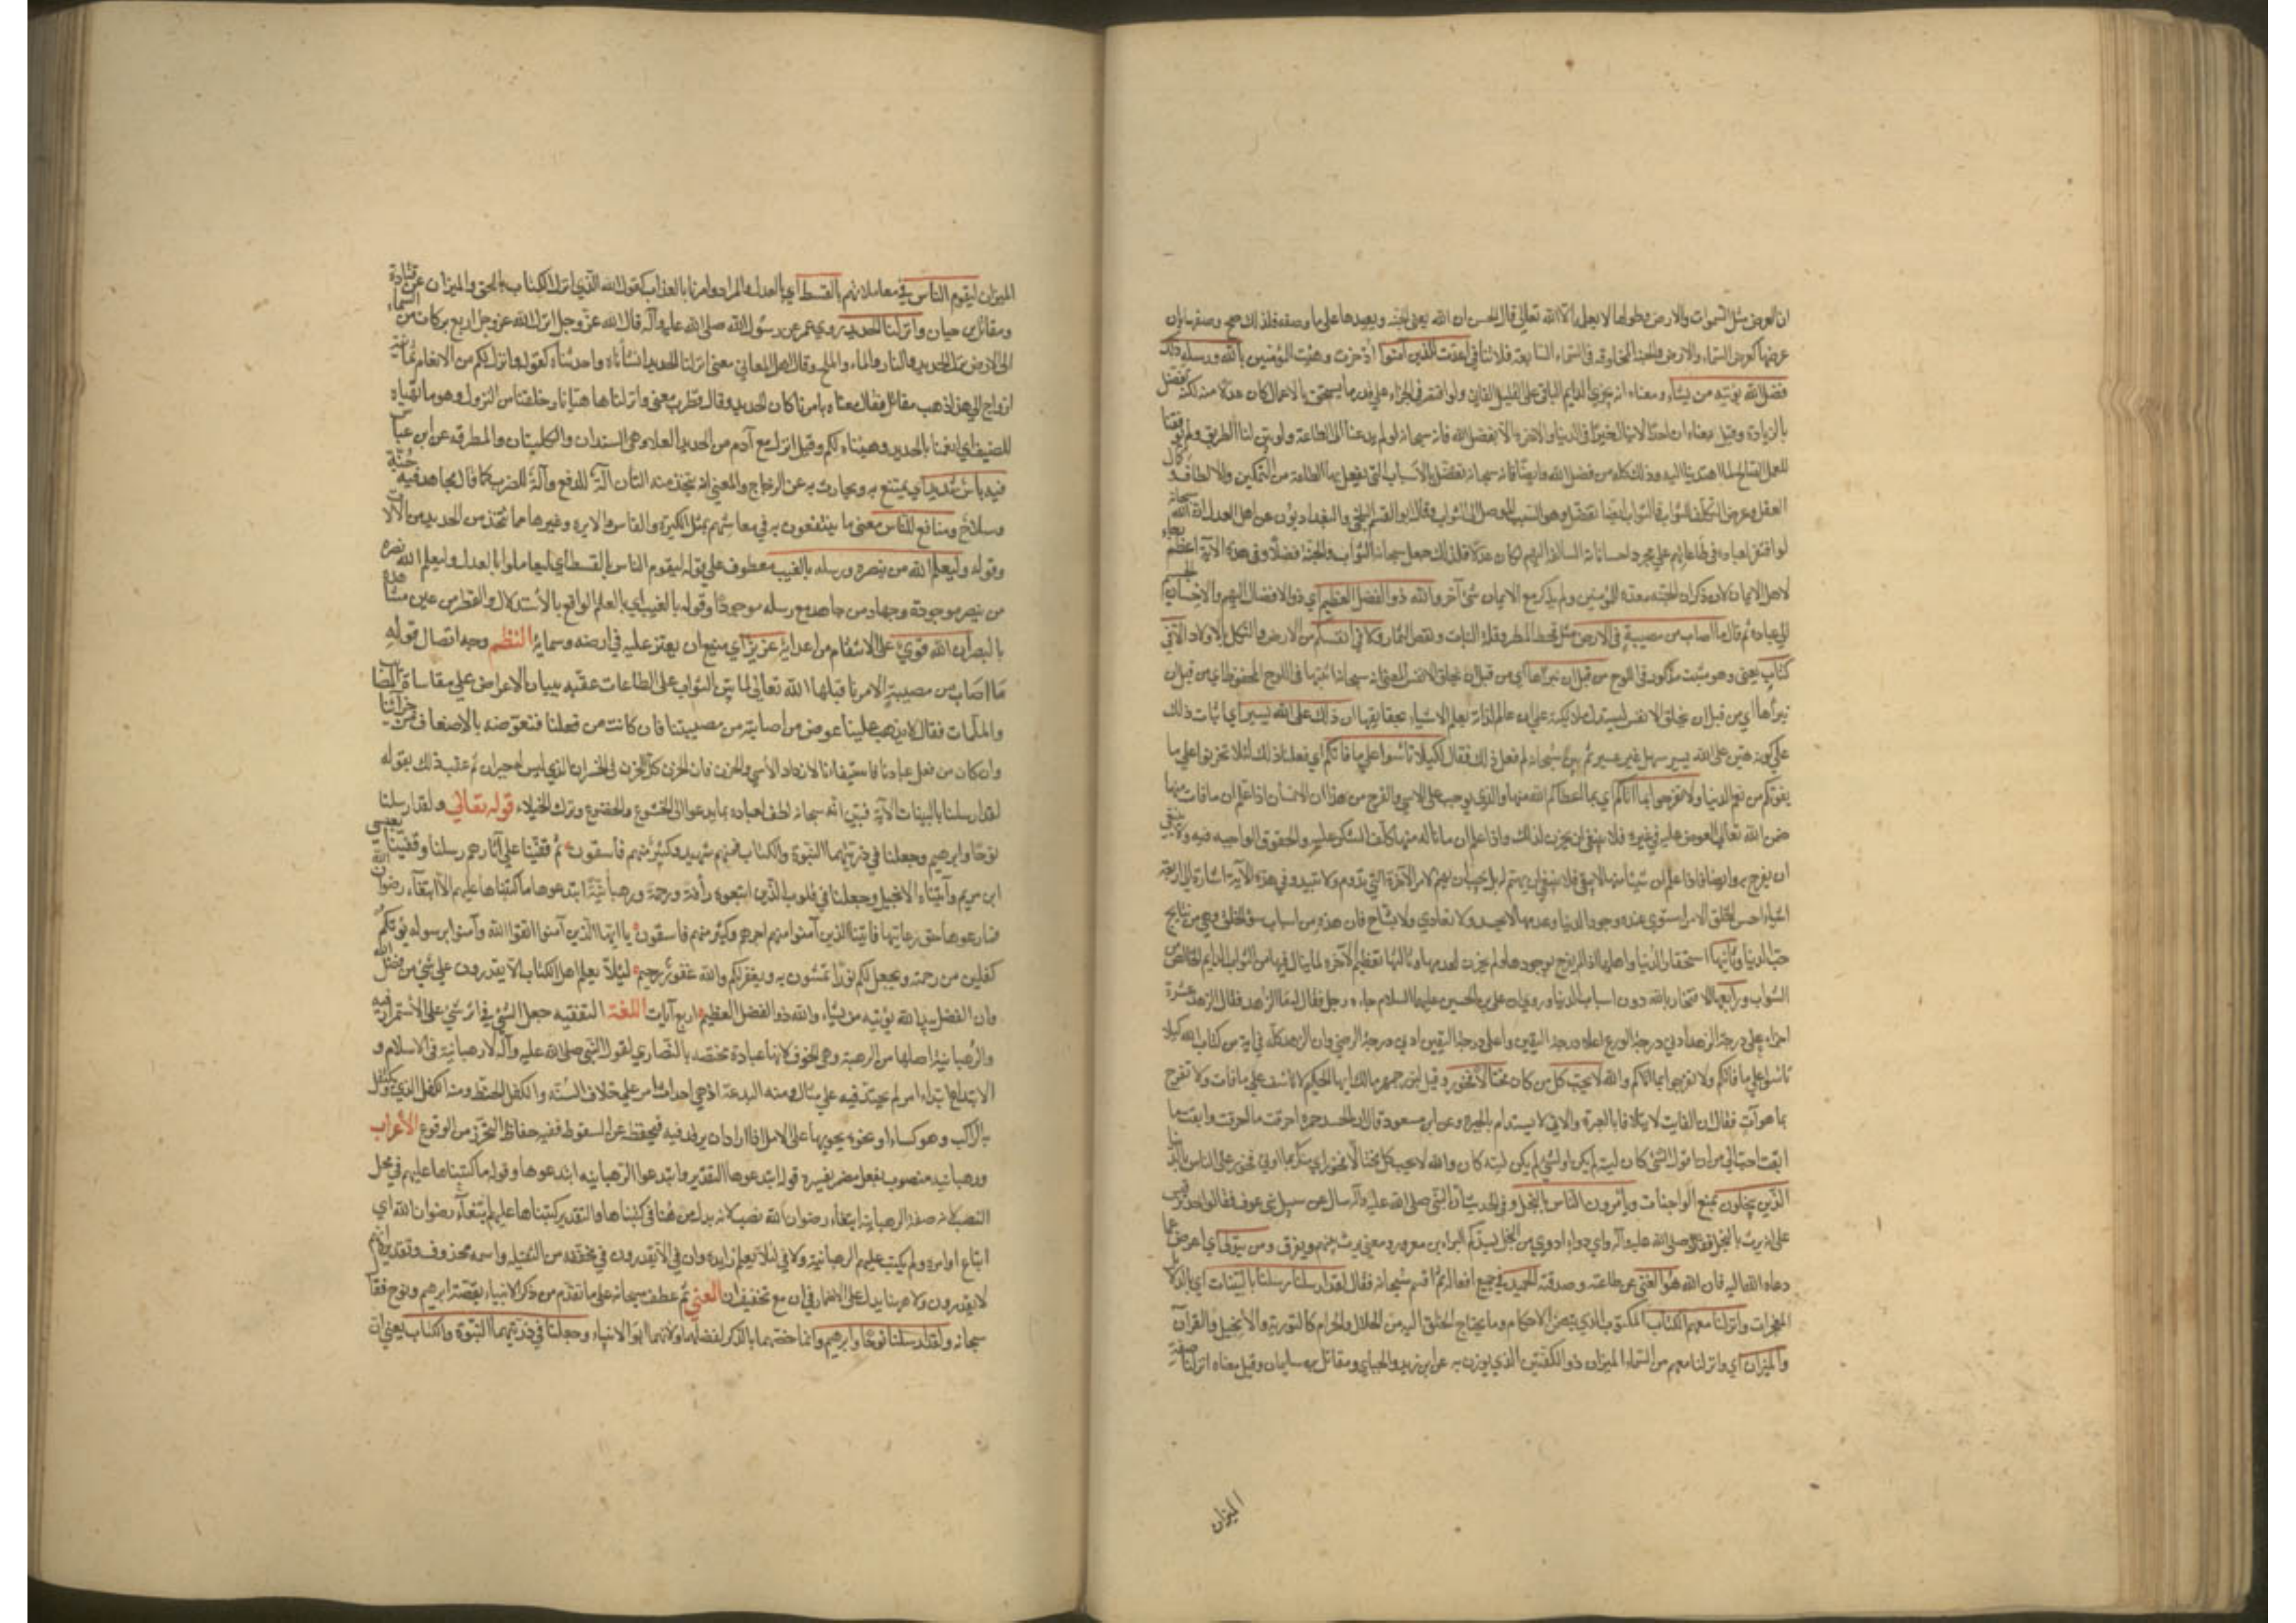 ان العرض مثل السموات والارض وطولها لا يعلمه الا الله تعالى قال الحسن ان الله يفني الجنة ويعيدها على ما وصفه فلذلك صح وصفها بان
عرضها كعرض السماء والارض والجنة المخلوقة في السماء السابعة فلا تنافي اعدت للذين آمنوا اذخرت وهيئت للمؤمنين بالله ورسله ذلك
فضل الله يؤتيه من يشاء ومعناه انه يجزي الدايم الباقي على القليل الفاني ولو اقتصر في الجزاء على قدر ما يستحق بالاعمال كان عدلا منه لكنه تفضل
بالزيادة وقيل معناه ان احدا لا ينال خيرا في الدنيا والاخرة الا بفضل الله فانه سبحانه لو لم يدعنا الى الطاعة ولو بين لنا الطريق ولم يوفقنا
للعمل الصالح لما اهتدينا اليه وذلك كله من فضل الله وايضا فانه سبحانه تفضل بالاسباب التي يفعل بها الطاعة من التمكين والالطاف وكمال
العقل وعرض المكلف للثواب فالثواب ايضا تفضل وهو السبب الموصل الى الثواب وقال ابو القسم البلخي والبغداديون من اهل العدل ان الله سبحانه
لو اقتصر لعباده في طاعاتهم على مجرد احساناته السالفة اليهم لكان عدلا فلذلك جعل سبحانه الثواب والجنة فضلا وفي هذه الآية اعظم رجاء
لاهل الايمان لانه ذكر ان الجنة معدة للمؤمنين ولم يذكر مع الايمان شئ آخر والله ذو الفضل العظيم اي ذو الافضال اليهم والاحسان الجسيم
الى عباده ثم قال ما اصاب من مصيبة في الارض مثل قحط المطر وقلة النبات ونقص الثمار ولا في انفسكم من الارض والثكل بالاولاد الا في
كتاب يعني وهو مثبت مذكور في اللوح من قبل ان نبراها اي من قبل ان نخلق الانفس المعنى انه سبحانه اثبتها في اللوح المحفوظ اي من قبل ان
نبرأها اي من قبل ان يخلق الانفس ليستدل ملائكته على انه عالم لذاته يعلم الاشياء بحقايقها ان ذلك على الله يسير اي اثبات ذلك
على كونه هين على الله يسير سهل غير عسير ثم بين سبحانه لم فعل ذلك فقال لكيلا تأسوا على ما فاتكم اي فعلنا ذلك لئلا تحزنوا على ما
يفوتكم من نعم الدنيا ولا تفرحوا بما آتاكم اي بما اعطاكم الله منها والذي يوجب على الاسي والفرح من هذا ان الانسان اذا علم ان ما فات منها
ضمن الله تعالى العوض عليه في غيره فلا ينبغي ان يحزن لذلك واذا علم ان ما ناله منها كلف الشكر عليه والحقوق الواجبة فيه ولا ينبغي
ان يفرح به وايضا فاذا علم ان شيئا منها لا يبقى فلا ينبغي ان يهتم له بل يجب ان يهتم لامر الآخرة التي تدوم ولا تبيد وفي هذه الآية اشارة الى اربعة
اشياء حسن الخلق لان من استوى عنده وجود الدنيا وعدمها لا يحسد ولا يعادي ولا يشاح فان هذه من اسباب سؤ الخلق وهي من نتايج
حب الدنيا وثانيها استحقار الدنيا واهلها اذا لم يفرح بوجودها ولم يحزن لعدمها وثالثها تعظيم الآخرة لما ينال فيها من الثواب الدايم الخالص من
الشواب ورابعها الافتخار بالله دون اسباب الدنيا وروي ان علي بن الحسين عليهما السلام جاءه رجل فقال له ما الزهد فقال الزهد عشرة
اجزاء فاعلى درجة الزهد ادنى درجة الورع واعلى درجة الورع ادنى درجة اليقين واعلى درجة اليقين ادنى درجة الرضى وان الزهد كله في آية من كتاب الله لكيلا
تأسوا على ما فاتكم ولا تفرحوا بما آتاكم والله لا يحب كل من كان مختال فخور وقيل لبزرجمهر مالك ايها الحكيم لا تاسف على ما فات ولا تفرح
بما هو آت فقال ان الفايت لا يتلافا بالعبرة والاتي لا يستدام بالحبرة وعن ابن مسعود قال لان الحس جمرة احرقت ما احرقت وابقت ما
ابقت احب الي من ان اقول لشئ كان ليته لم يكن او لشئ لم يكن ليته كان والله لا يحب كل مختال فخور اي متكبر بما اوتي فخور على الناس بالدنيا
الذين يبخلون بمنع الواجبات ويأمرون الناس بالبخل وفي الحديث ان النبي صلى الله عليه وآله سال عن سيد بني عوف فقالوا جد بن قيس
على انه يزن بالبخل فقال صلى الله عليه وآله واي داء ادوى من البخل سيدكم البراء بن معرور ومعنى يزن يتهم ويقرف ومن يتولى اي اعرض عما
دعاه الله اليه فان الله هو الغني عن طاعته وصدقته الحميد في جميع افعاله ثم اقسم سبحانه فقال لقد ارسلنا رسلنا بالبينات اي بالدلايل
المعجزات وانزلنا معهم الكتاب المكتوب الذي يتضمن الاحكام وما يحتاج الخلق اليه من الحلال والحرام كالتورية والانجيل والقرآن
والميزان اي وانزلنا معهم من السماء الميزان ذو الكفتين الذي يوزن به عن ابن زيد والجبائي ومقاتل بن سليمان وقيل معناه انزلنا صفة
الميزان
الميزان ليقوم الناس في معاملاتهم بالقسط اي بالعدل والمراد وامرنا بالعدل كقوله الله الذي انزل الكتاب بالحق والميزان عن قتادة
ومقاتل بن حيان وانزلنا الحديد روي عن عمر عن رسول الله صلى الله عليه وآله قال الله عز وجل انزل الله عز وجل اربع بركات من السماء
الى الارض انزل الحديد والنار والماء والملح وقال اهل المعاني معنى انزلنا الحديد انشأناه واحدثناه كقوله وانزل لكم من الانعام ثمانية
ازواج الى هذا ذهب مقاتل فقال معناه بامرنا كان الحديد وقال قطرب معنى وانزلناها هيأنا وخلقنا من النزل وهو ما يهياه
للضيف اي انعمنا بالحديد وهيئناه لكم وقيل انزل مع آدم من الحديد العلاة وهي السندان والكلبتان والمطرقة عن ابن عباس
فيه بأس شديد اي يمتنع به ويحارب به عن الزجاج والمعنى انه يتخذ منه التان آلة للدفع وآلة للضرب كما قال مجاهد فيه جنة
وسلاح ومنافع للناس معنى ما ينتفعون به في معاشهم مثل السكين والفاس والابرة وغيرها مما تتخذ من الحديد من الآلات
وقوله وليعلم الله من ينصره ورسله بالغيب معطوف على قوله ليقوم الناس بالقسط اي ليعاملوا بالعدل وليعلم الله نصرة
من ينصر موجودة وجهاد من جاهد مع رسله موجودا وقوله بالغيب اي بالعلم الواقع بالاستدلال والنظر من غير مشاهدة
بالبصر ان الله قوي على الانتقام من اعدايه عزيز اي منيع ان يعتز عليه في ارضه وسمايه النظم وجه اتصال قوله
ما اصاب من مصيبة الا مر بما قبلها الله تعالى لما بين الثواب على الطاعات عقبه ببيان الاعراض على مقاساة المصايب
والملمات فقال لا يذهب علينا عوض من اصابته من مصيبتنا فان كانت من فعلنا فنعوضه بالاضعاف من خزائننا
وان كان من فعل عبادنا فاستيفاؤنا لازدياد الاسي والحزن فان الحزن كل الحزن في الخسران الذي ليس له جبران ثم عقب ذلك بقوله
لقد ارسلنا بالبينات الآية فبين انه سبحانه لطف لعباده بما يدعو الى الخشوع والخضوع وترك الخيلاء قوله تعالى ولقد ارسلنا
نوحا وابرهيم وجعلنا في ذريتهما النبوة والكتاب فمنهم مهتد وكثير منهم فاسقون ثم قفينا على آثارهم رسلنا وقفينا بعيسى
ابن مريم وآتيناه الانجيل وجعلنا في قلوب الذين اتبعوه رأفة ورحمة ورهبانية ابتدعوها ما كتبناها عليهم الا ابتغاء رضوان الله
فما رعوها حق رعايتها فآتينا الذين آمنوا منهم اجرهم وكثير منهم فاسقون يا ايها الذين آمنوا اتقوا الله وآمنوا برسوله يؤتكم
كفلين من رحمته ويجعل لكم نورا تمشون به ويغفر لكم والله غفور رحيم لئلا يعلم اهل الكتاب الا يقدرون على شئ من فضل الله
وان الفضل بيد الله يؤتيه من يشاء والله ذو الفضل العظيم اربع آيات اللغة التقفيه جعل الشئ في اثر شئ على الاستمرار فيه
والرهبانية اصلها من الرهبة وهي الخوف الا انها عبادة مختصة بالنصارى لقول النبي صلى الله عليه وآله لا رهبانية في الاسلام و
الابتداع ابتداء امر لم يحتذ فيه على مثال ومنه البدعة اذ هي احداث امر على خلاف السنة والكفل الحظ ومنه الكفل الذي يكتفل
به الراكب وهو كساء او نحوه يحويها على الابل اذا اراد ان يرقد فيه فيحفظه عن السقوط ففيه حفاظ التحرز من الوقوع الاعراب
ورهبانية منصوب بفعل مضمر يفسره قوله ابتدعوها التقدير وابتدعوا الرهبانيه ابتدعوها وقوله ما كتبناها عليهم في محل
النصب لانه صفة لرهبانية ابتغاء رضوان الله نصب لانه بدل من ها في كتبناها والتقدير كتبناها عليهم ابتغاء رضوان الله اي
اتباع اوامره ولم يكتب عليهم الرهبانية ولا في لئلا يعلم زايدة وان في الا يقدرون في مخففه من الثقيلة واسمه محذوف وتقديره انهم
لا يقدرون ولا هيهنا يدل على الاضمار في ان مع تخفيف ان المعنى ثم عطف سبحانه على ما تقدم من ذكر الانبياء بقصة ابرهيم ونوح فقال
سبحانه ولقد ارسلنا نوحا وابرهيم وانما خصهما بالذكر لفضلهما ولانهما ابوا الانبياء وجعلنا في ذريتهما النبوة والكتاب يعني ان